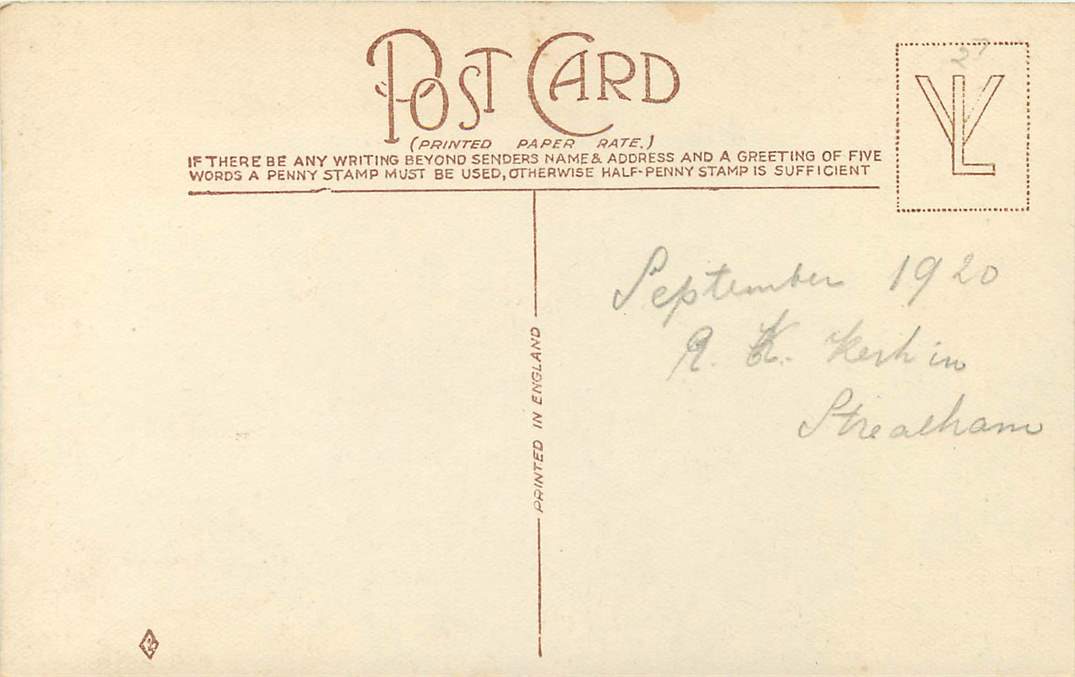 POST CARD
(PRINTED PAPER RATE.)
IF THERE BE ANY WRITING BEYOND SENDERS NAME & ADDRESS AND A GREETING OF FIVE
WORDS A PENNY STAMP MUST BE USED, OTHERWISE HALF-PENNY STAMP IS SUFFICIENT
VL
27
PRINTED IN ENGLAND
September 1920
K. Kerkin
Streatham